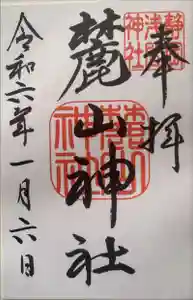 奉拝
静岡
浅間
神社
麓山神社
令和六年一月六日